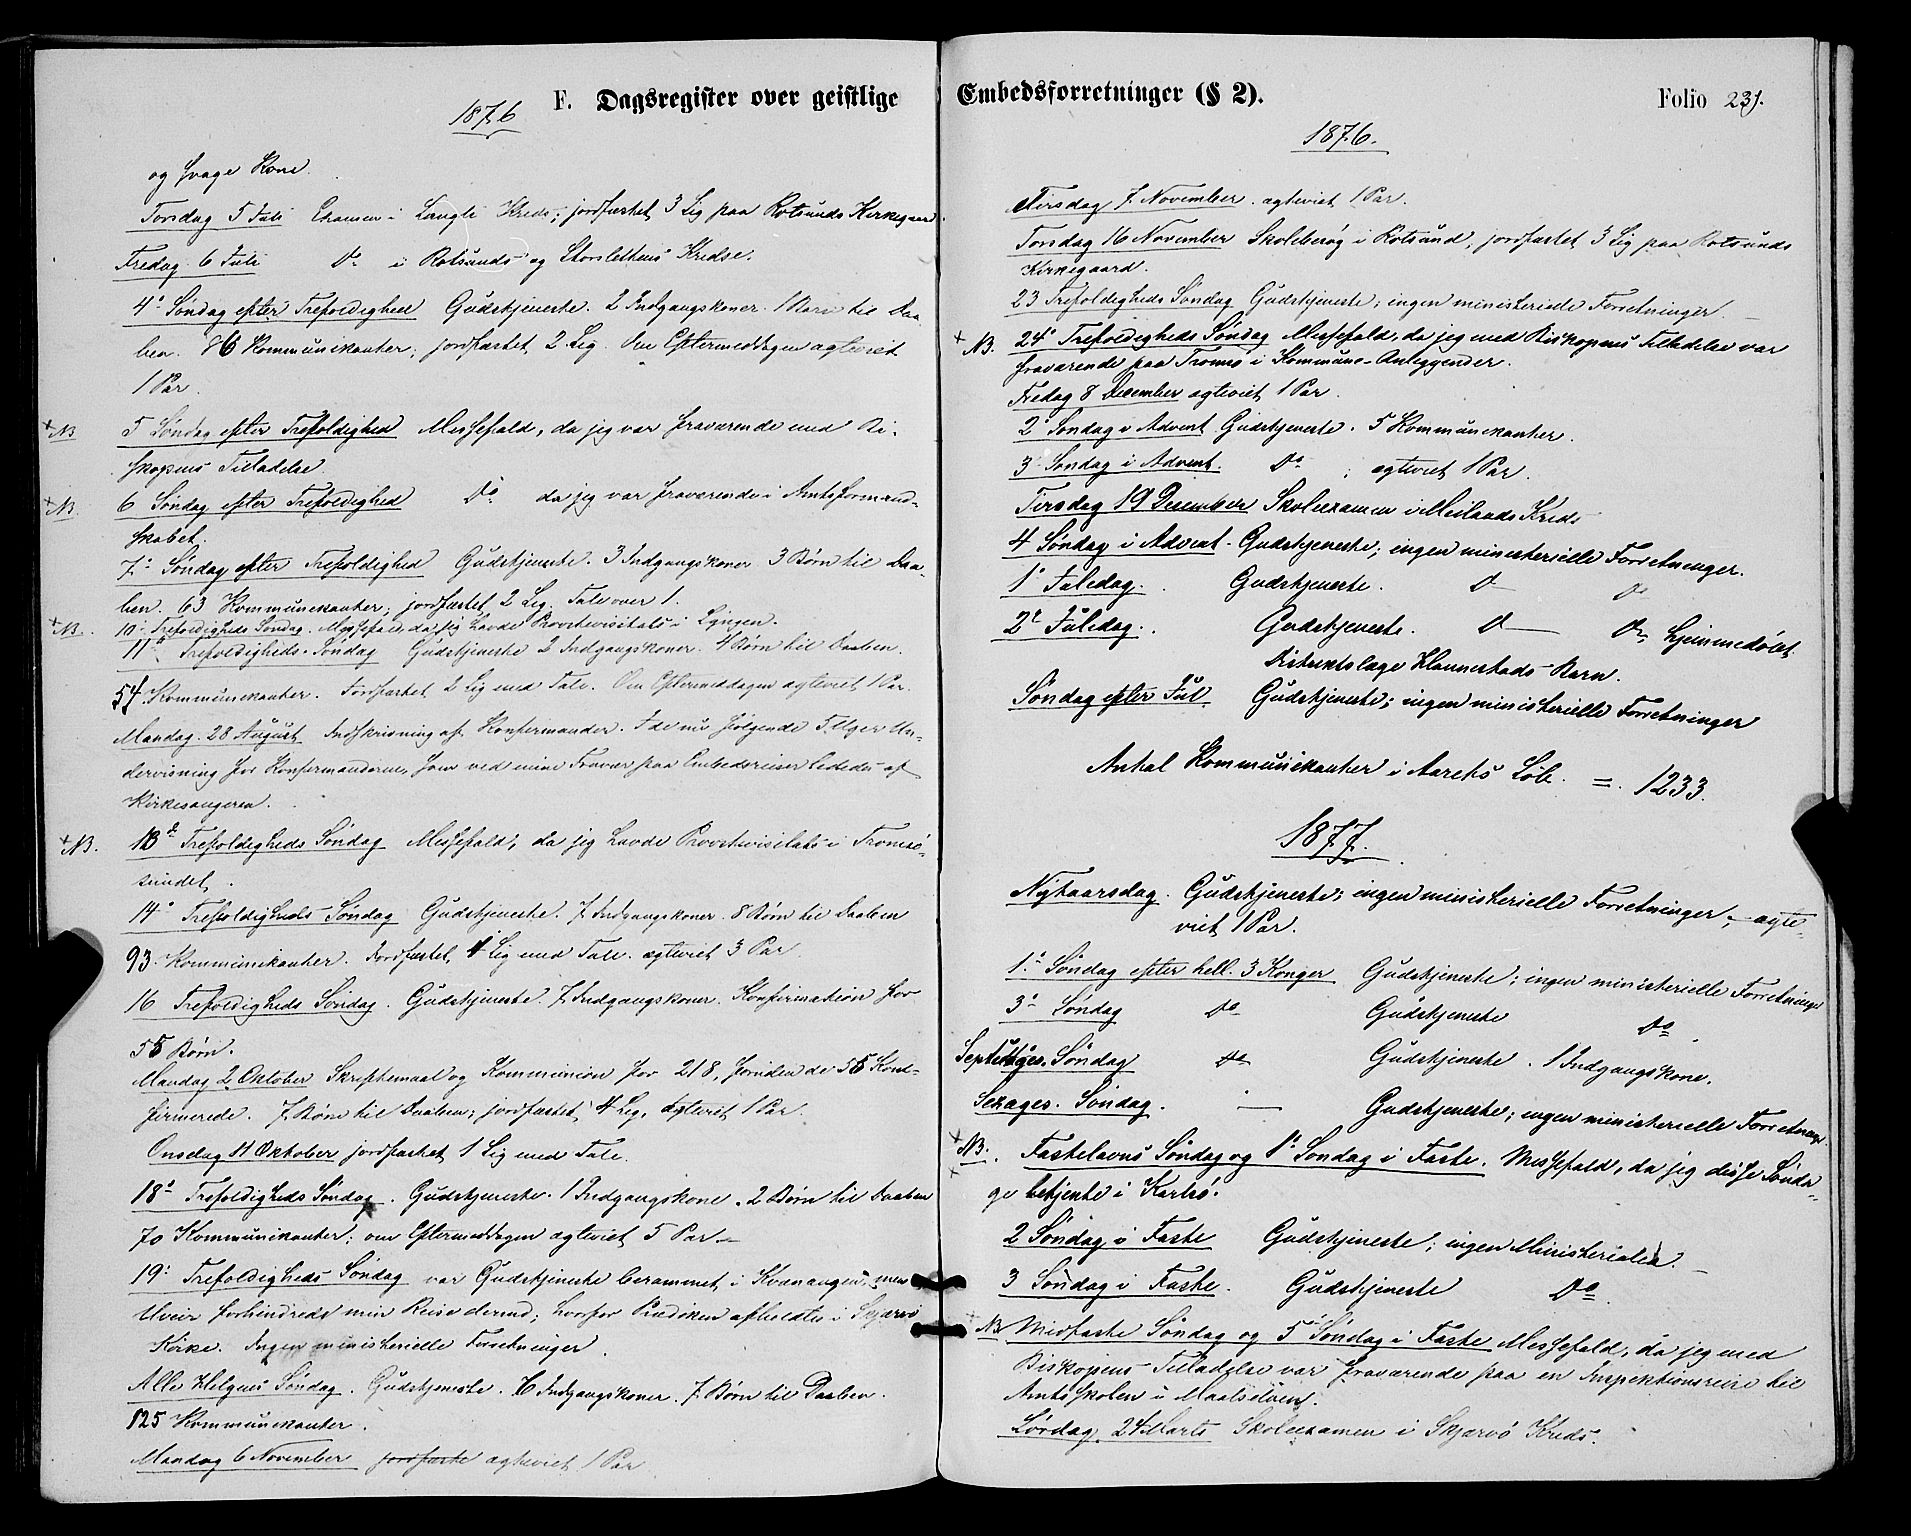 F. Dagsregister over geistlige
1876
og svage Kone.
Torsdag 5 Juli Examen i Langli Kreds; jordfæstet 3 Lig paa Rotsunds Kirkegaard.
Fredag 6 Juli Do i Rotsunds og Storslettens Kredse.
4de Søndag efter Trefoldighed Gudstjeneste. 2 Indgangskoner. 1 Barn til Daa-
ben. 86 Kommunikanter; jordfæstet 2 Lig. Om Eftermeddagen ægteviet
1 Par.
+ NB 5 Søndag efter Trefoldighed Messefald, da jeg var fraværende med Bi-
skopens Tilladelse.
+ NB. 6 Søndag efter Trefoldighed Do da jeg var fraværende i Amtsformand-
skabet.
7de Søndag efter Trefoldighed Gudstjeneste. 3 Indgangskoner 3 Børn til Daa-
ben. 63 Kommunikanter; jordfæstet 2 Lig. Tale over 1.
+ NB. 10de Trefoldigheds Søndag. Messefald, da jeg havde Provstevisitats i Lyngen.
11te Trefoldigheds Søndag Gudstjeneste 2 Indgangskoner. 4 Børn til Daaben.
54 Kommunikanter. Jordfæstet 2 Lig med Tale. Om Eftermeddagen ægteviet 1 Par.
Mandag 28 August Indskrivning af Konfirmander. I de nu følgende 5 Uger Un-
dervisning for Konfirmanderne, som ved mine Fravær paa Embedsreiser lededes af
Kirkesangeren.
+ NB. 13de Trefoldigheds Søndag Messefald, da jeg havde Provstevisitats i Tromsø-
sundet.
14de Trefoldigheds Søndag Gudstjeneste. 7 Indgangskoner. 8 Børn til Daaben
93 Kommunikanter. Jordfæstet 4 Lig med Tale. ægteviet 3 Par.
16 Trefoldigheds Søndag. Gudstjeneste. 7 Indgangskoner. Konfirmation for
55 Børn.
Mandag 2 Oktober Skriftemaal og Kommunion for 218, foruden de 55 Kon-
firmerede. 7 Børn til Daaben; jordfæstet 4 Lig, ægteviet 1 Par.
Onsdag 11 Oktober jordfæstet 1 Lig med Tale.
18de Trefoldigheds Søndag. Gudstjeneste. 1 Indgangskone. 2 Børn til Daaben
70 Kommunikanter; om Eftermeddagen ægteviet 5 Par.
19de Trefoldigheds Søndag var Gudstjeneste berammet i Kvænangen, men
Uveir forhindrede min Reise derind; hvorfor Prædiken afholdtes i Skjærvø
Kirke. Ingen ministerielle Forretninger.
Alle Helgens Søndag. Gudstjeneste. 6 Indgangskoner. 7 Børn til Daaben.
125 Kommunikanter.
Mandag 6 November jordfæste ægteviet 1 Par
Embedsforretninger (§ 2).
Folio 231.
1876.
Tirsdag 7 November. ægteviet 1 Par.
Torsdag 16 November Skolebesøg i Rotsund, jordfæstet 3 Lig paa Rotsunds
Kirkegaard.
23 Trefoldigheds Søndag Gudstjeneste; ingen ministerielle Forretninger.
+ NB. 24de Trefoldigheds Søndag Messefald, da jeg med Biskopens Tilladelse var
fraværende paa Tromsø i Kommune-Anliggender.
Fredag 8 December ægteviet 1 Par.
2de Søndag i Advent Gudstjeneste. 5 Kommunikanter.
3 Søndag i Advent. Do; ægteviet 1 Par.
Tirsdag 19 December Skoleexamen i Meilands Kreds
4 Søndag i Advent. Gudstjeneste; ingen ministerielle Forretninger.
1de Juledag. Gudstjeneste. Do Do
2de Juledag. Gudstjeneste. Do Do, hjemmedøbt
Distriktslæge Hannestads Barn.
Søndag efter Jul Gudstjeneste; ingen ministerielle Forretninger
Antal Kommunikanter i Aarets Løb. = 1233.
1877.
Nytaarsdag. Gudstjeneste; ingen ministerielle Forretninger; ægte-
viet 1 Par.
1ste Søndag efter hell. 3 Konger Gudstjeneste; ingen ministerielle Forretninger
3de Søndag Do Gudstjeneste Do
Septuages. Søndag Do Gudstjeneste. 1 Indgangskone.
Sexages. Søndag. — Gudstjeneste; ingen ministerielle Forretninger
+ NB. Fastelavns Søndag og 1ste Søndag i Faste. Messefald, da jeg disse Sønda-
ge betjente i Karlsø.
2 Søndag i Faste Gudstjeneste; ingen Ministerialia.
3 Søndag i Faste. Gudstjeneste Do
NB Midfaste Søndag og 5te Søndag i Faste Messefald, da jeg med
Biskopens Tilladelse var fraværende paa en Inspektionsreise til
Amtsskolen i Maalselven.
Lørdag 24 Marts Skoleexamen i Skjærvø Kreds.